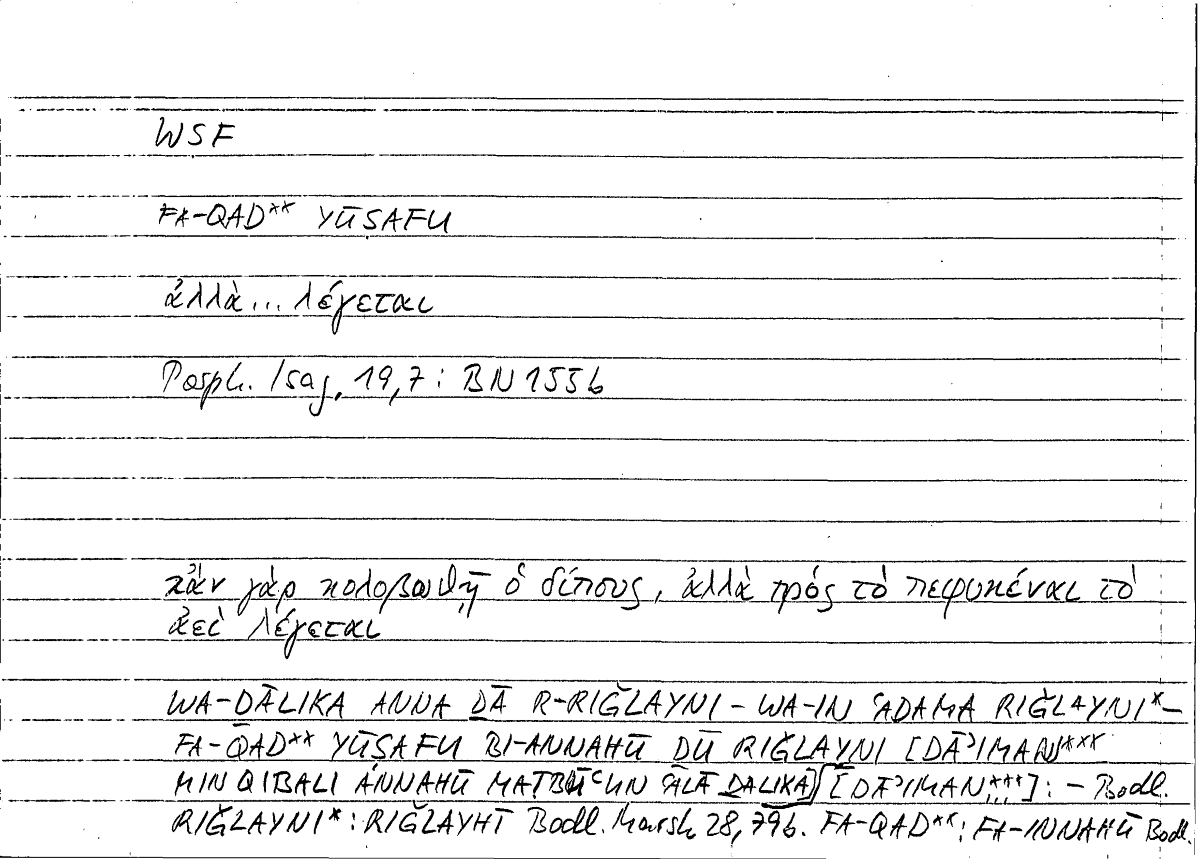 WSF
FA-QAD** YŪSAFU
ἀλλὰ... λέγεται
Porph. Isag. 19,7 : BN 155b
κἂν γὰρ κολοβωθῇ ὁ δίπους, ἀλλὰ πρὸς τὸ πεφυκέναι τὸ
ἀεὶ λέγεται
WA-ḎĀLIKA ANNA ḎĀ R-RIǦLAYNI – WA-IN ʿADAMA RIǦLAYNI* –
FA-QAD** YŪSAFU BI-ANNAHŪ ḎŪ RIǦLAYNI [DĀʾIMAN***
MIN QIBALI ANNAHŪ MAṬBŪʿUN ʿALĀ ḎALIKA] [DĀʾIMAN***] : – Bodl.
RIǦLAYNI* : RIǦLAYHĪ Bodl. Marsh 28, 79b. FA-QAD** : FA-INNAHŪ Bodl.